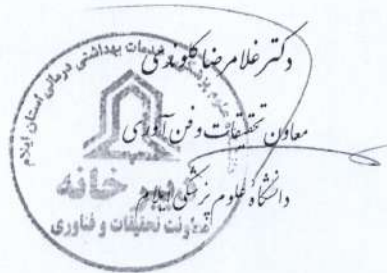 دکتر غلامرضا کاوندی
معاون تحقیقات و فن آوری
دانشگاه علوم پزشکی ایلام
علوم پزشکی و خدمات بهداشتی درمانی استان ایلام
دبیرخانه
معاونت تحقیقات و فناوری